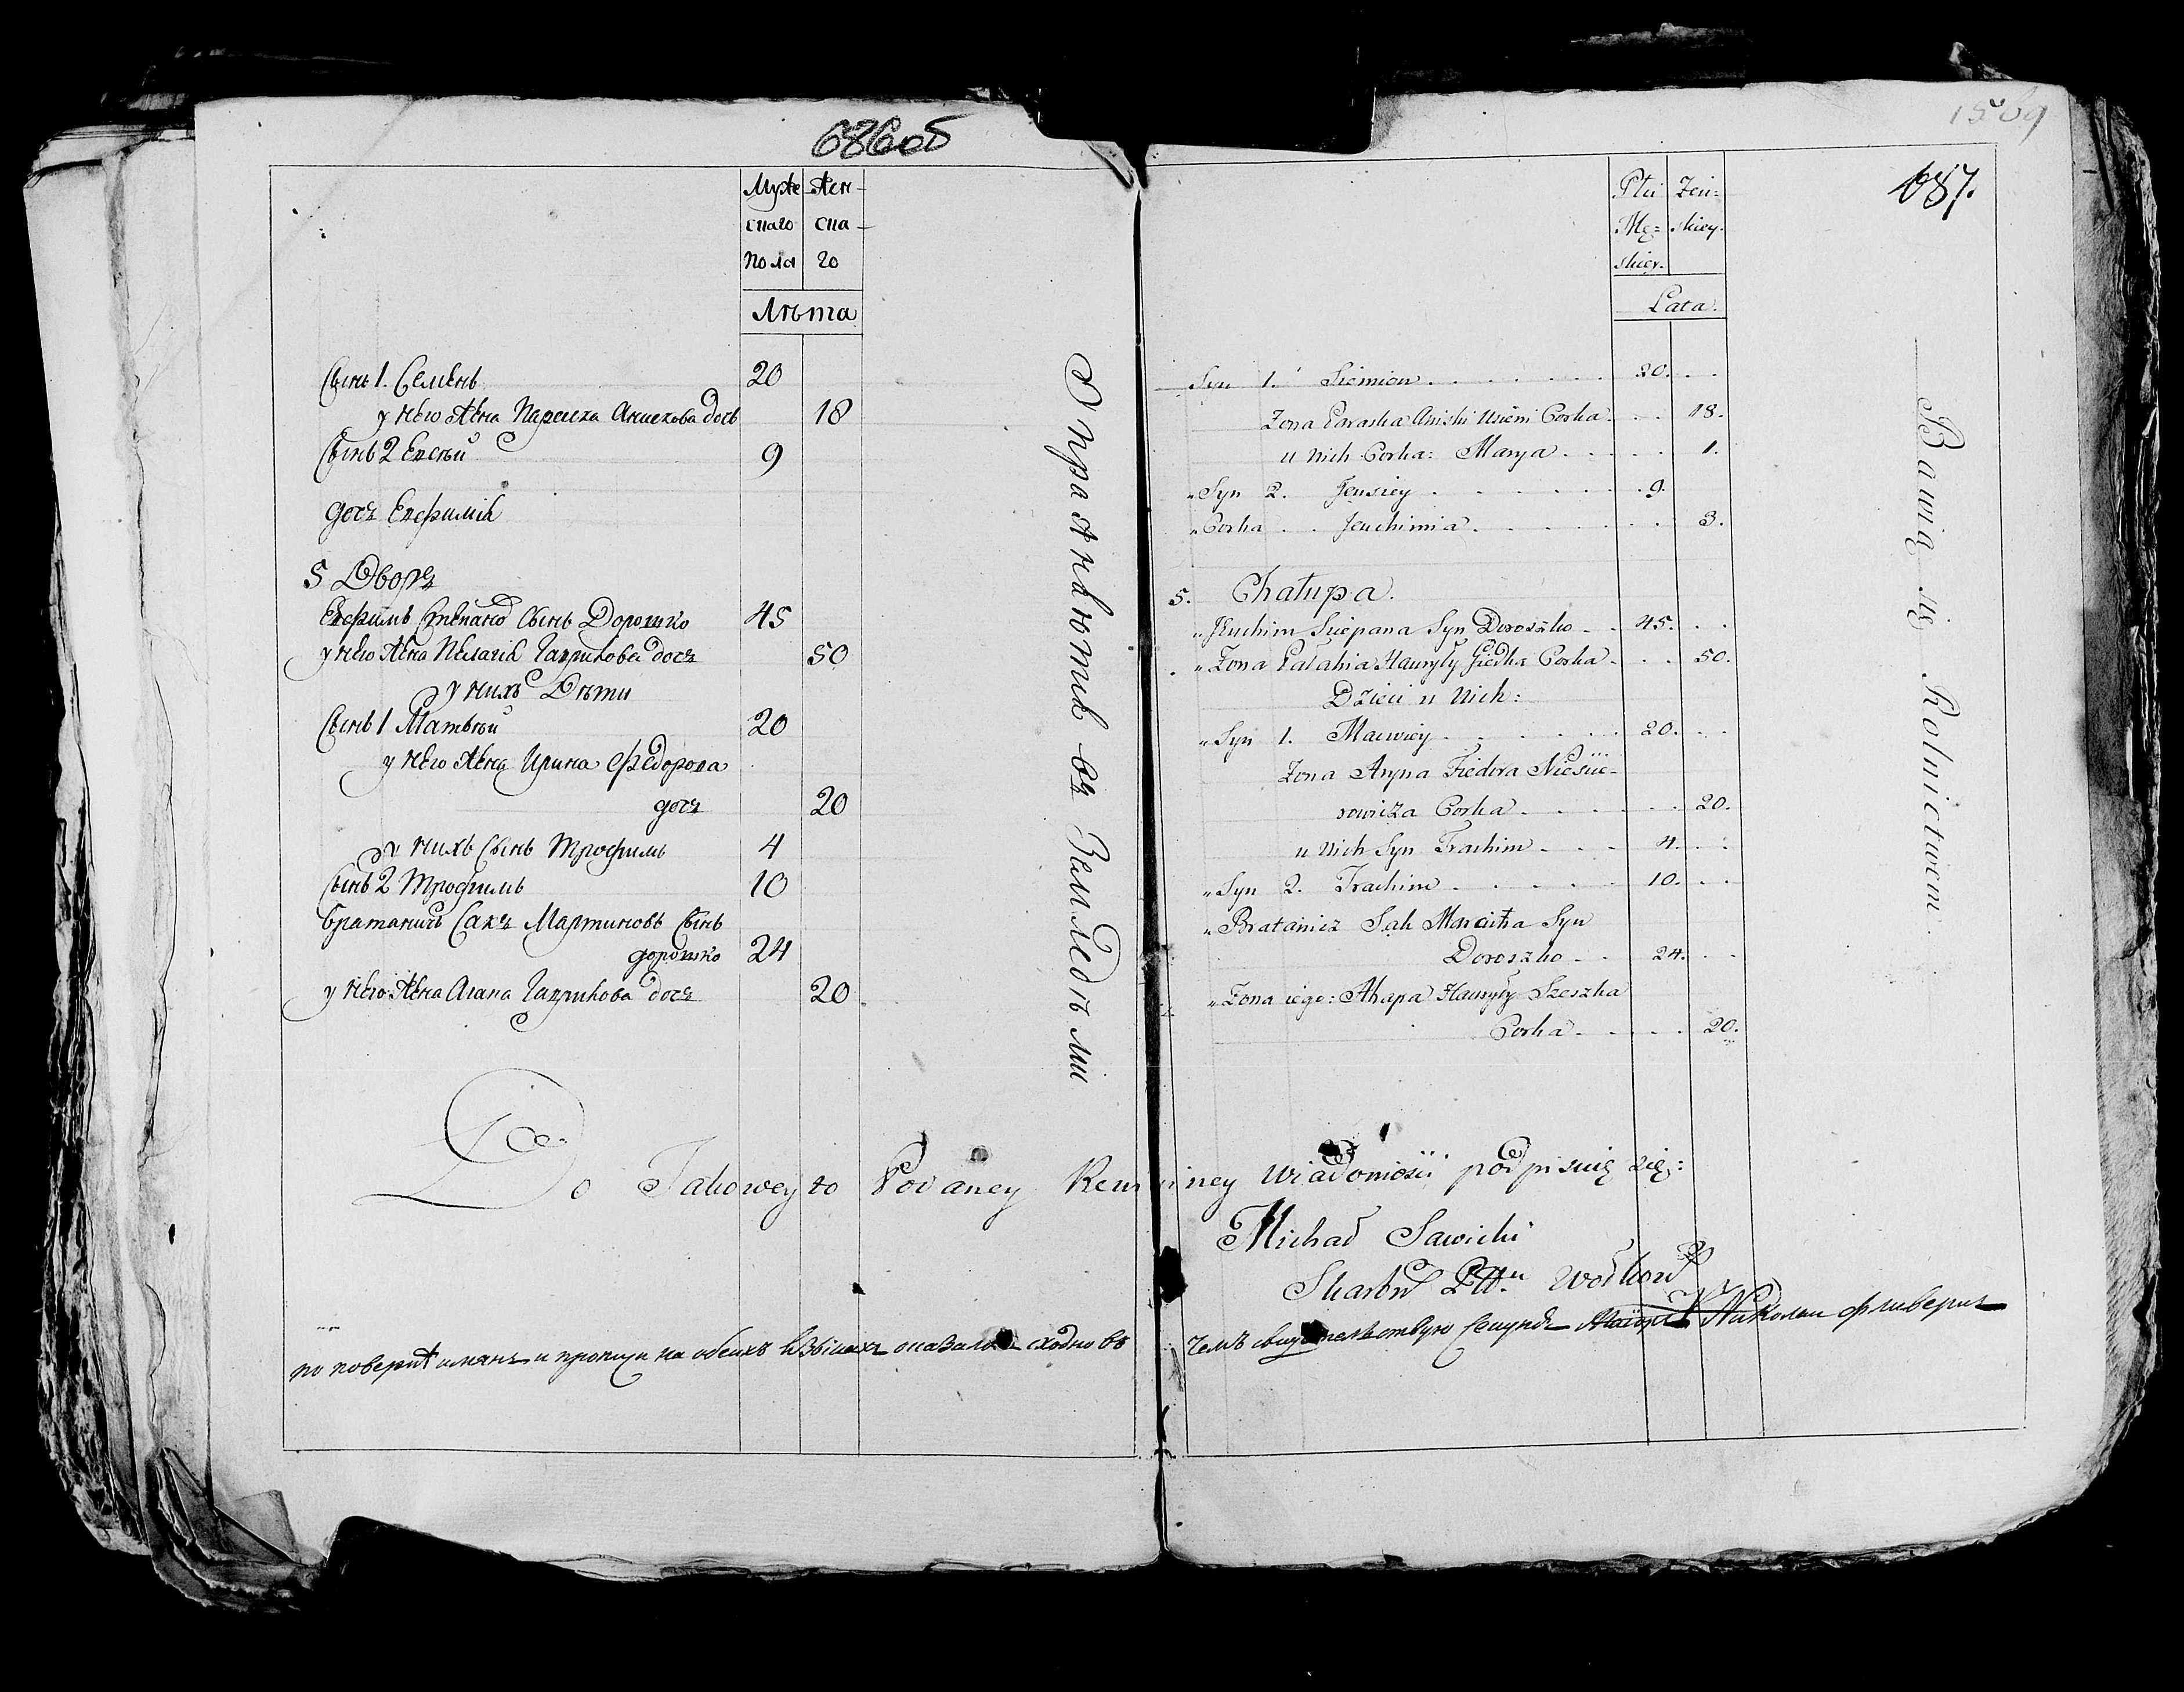 686об
Муже Жен-
скаго ска-
пола го
Лѣта
Сынъ 1. Семенъ 20
у него жена Параска Анискова дочь 18
Сынъ 2 Евсѣй 9
дочъ Евфимія
5 Дворъ
Евфимъ Степанов Сынъ Дорошко 45
у него жена Пелагія Гаврикова дочъ 50
у нихъ Дѣти
Сынъ 1 Матвѣй 20
у него жена Ирина Федорова
дочъ 20
у нихъ Сынъ Трофимъ 4
Сынъ 2 Трофимъ 10
братаничъ Сакъ Мартиновъ Сынъ
дорошко 24
у него жена Агапа Гаврикова дочъ 20
Упражняютсѧ въ Земледѣлии
687.
Płci Żeń=
Mę= skiey.
skiey.
Lata.
Syn 1. Siemion 20.
Zona Paraska Aniski Córka 18.
u Nich Corka: Marya 1.
Syn 2. Jeusiey 9.
Corka Jeuchimia 3.
5. Chałupa.
Jeuchim Sciepana Syn Doroszko 45.
Zona Pałahia Hauryły Corka 50.
Dzieci u Nich:
Syn 1. Maćwiey 20.
Zona Aryna Fiedora
rowicza Corka 20.
u Nich Syn Trachim 4.
Syn 2. Trachim 10.
Bratanicz Sak Marcina Syn
Doroszko 24.
Zona iego: Ahapa Hauryły Szeszka
Corka 20.
Bawią się Rolnictwem
Do Takowey to Podaney Rewizyiney Wiadomości podpisuię się:
Michał Sawicki
по поверки имянъ и прописи на обеихъ языкахъ оказалось сходно въ чемъ свидетелствую секундъ Маіоръ Николаи